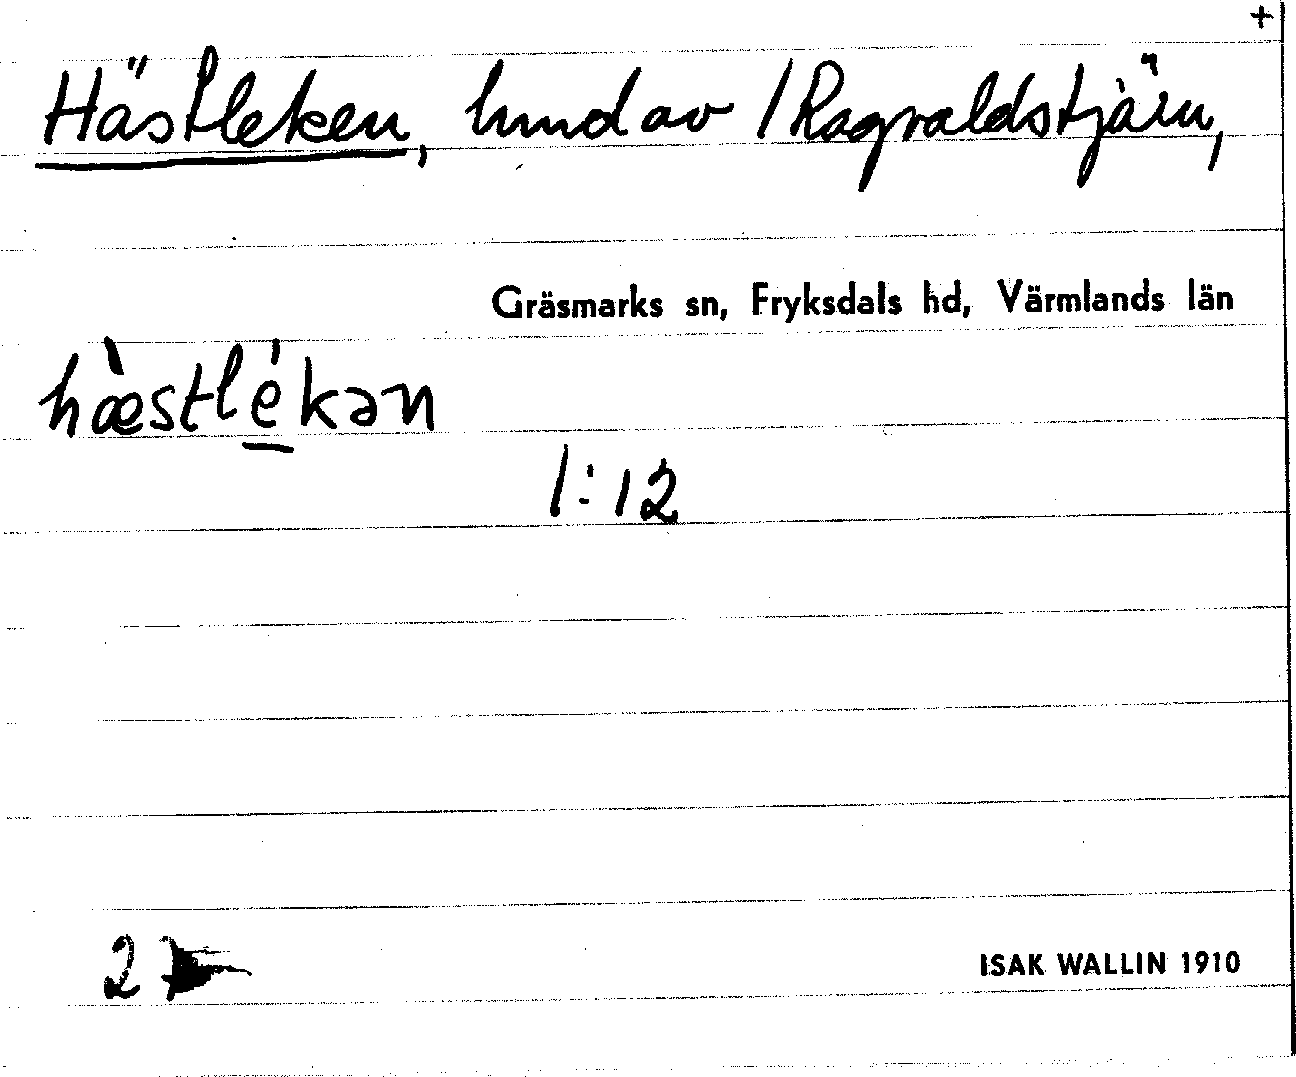 +
Hästleken, hmd av /Ragvaldstjärn,
Gräsmarks sn, Fryksdals hd, Värmlands län
hæ̀stlékən
1:12
2
ISAK WALLIN 1910